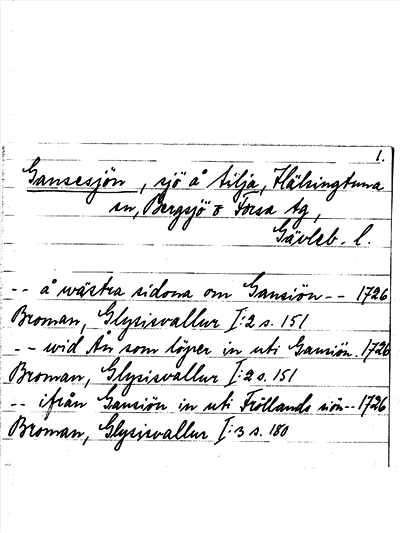 1.
Gansesjön, sjö å Lilja, Hälsingtuna
sn, Bergsjö o Forsa tg,
Gävleb. l.
-- å wästra sidona om Gansiön -- 1726
Broman, Glysisvallur I:2 s. 151
-- wid Ån som löper in uti Gansiön. 1726
Broman, Glysisvallur I:2 s. 151
-- ifrån Gansiön in uti Fröllands siön -- 1726
Broman, Glysisvallur I:3 s. 180